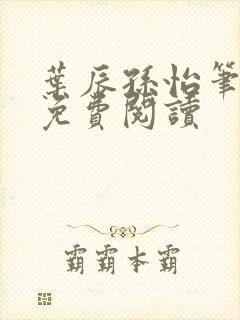 葉辰孫怡筆
免費閱讀
霸霸本霸